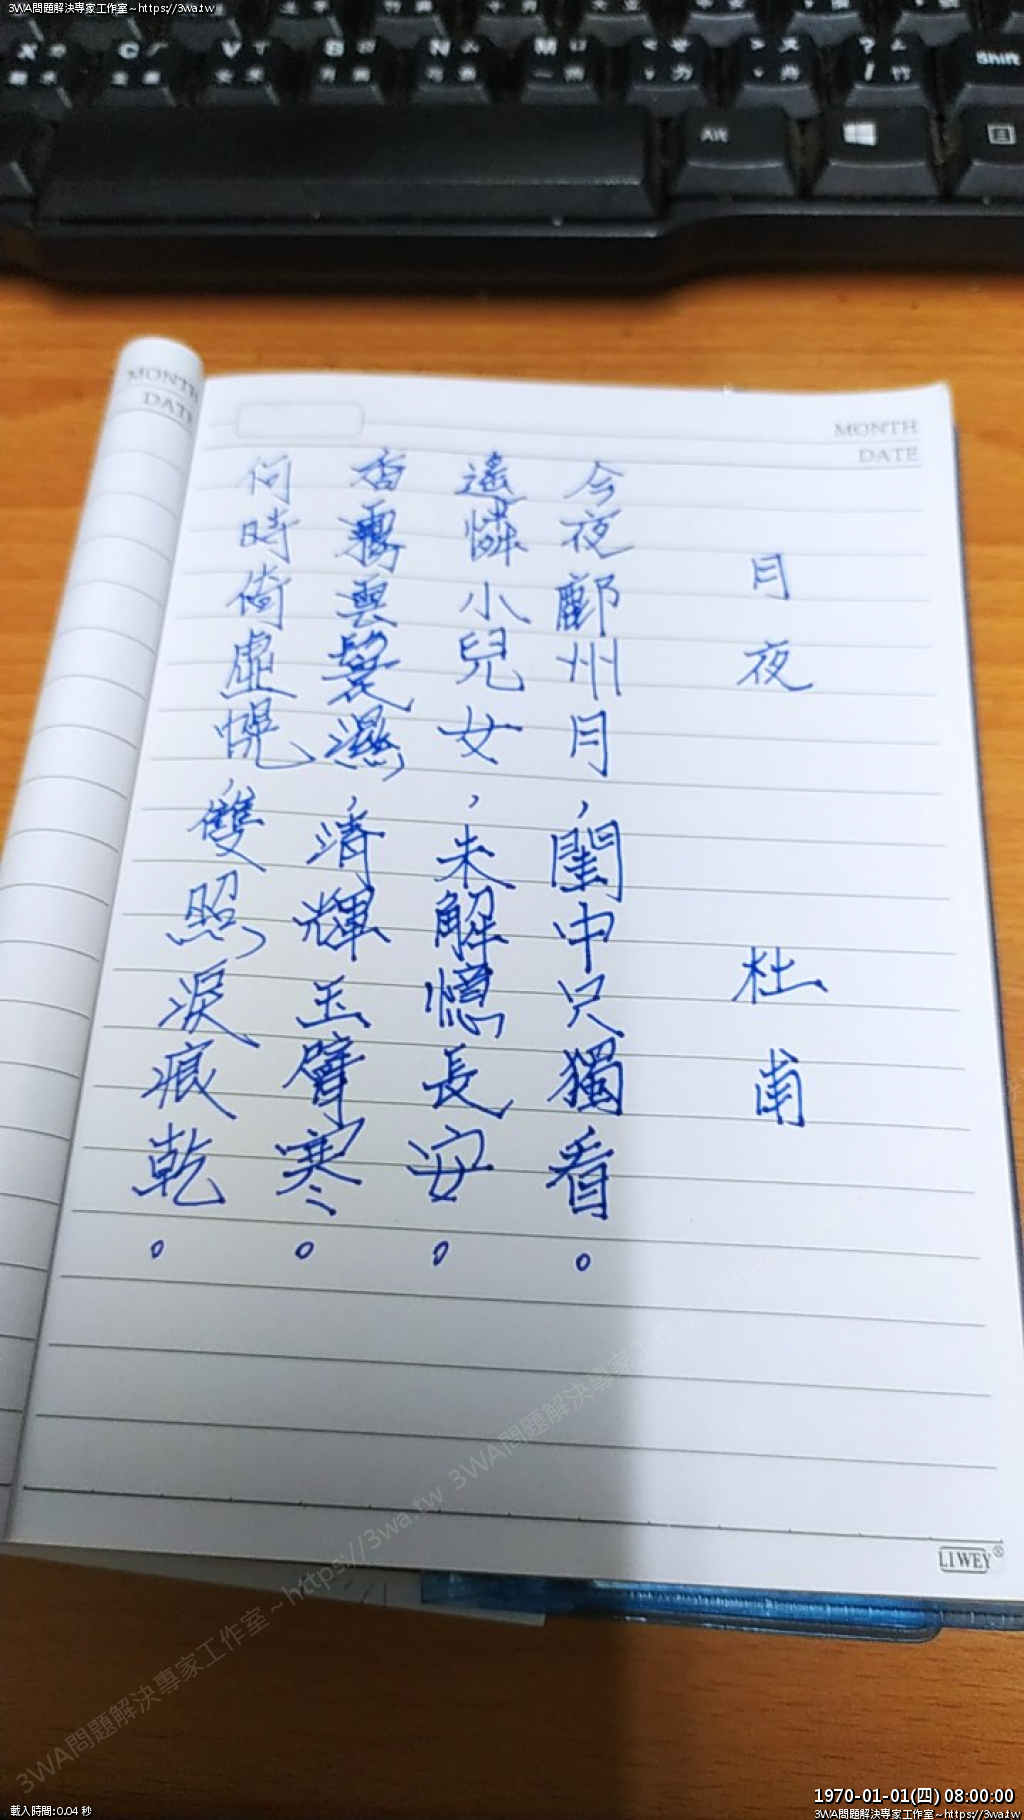 3WA問題解決專家工作室~https://3wa.tw
X
C
V
B
N
M
Shift
Alt
MONTH
DATE
MONTH
DATE
月夜
杜甫
今夜鄜州月，閨中只獨看。
遙憐小兒女，未解憶長安。
香霧雲鬟濕，清輝玉臂寒。
何時倚虛幌，雙照淚痕乾。
LIWEY®
3WA問題解決專家工作室~https://3wa.tw 3WA問題解決專家工作室~https://3wa.tw
載入時間:0.04 秒
1970-01-01(四) 08:00:00
3WA問題解決專家工作室~https://3wa.tw